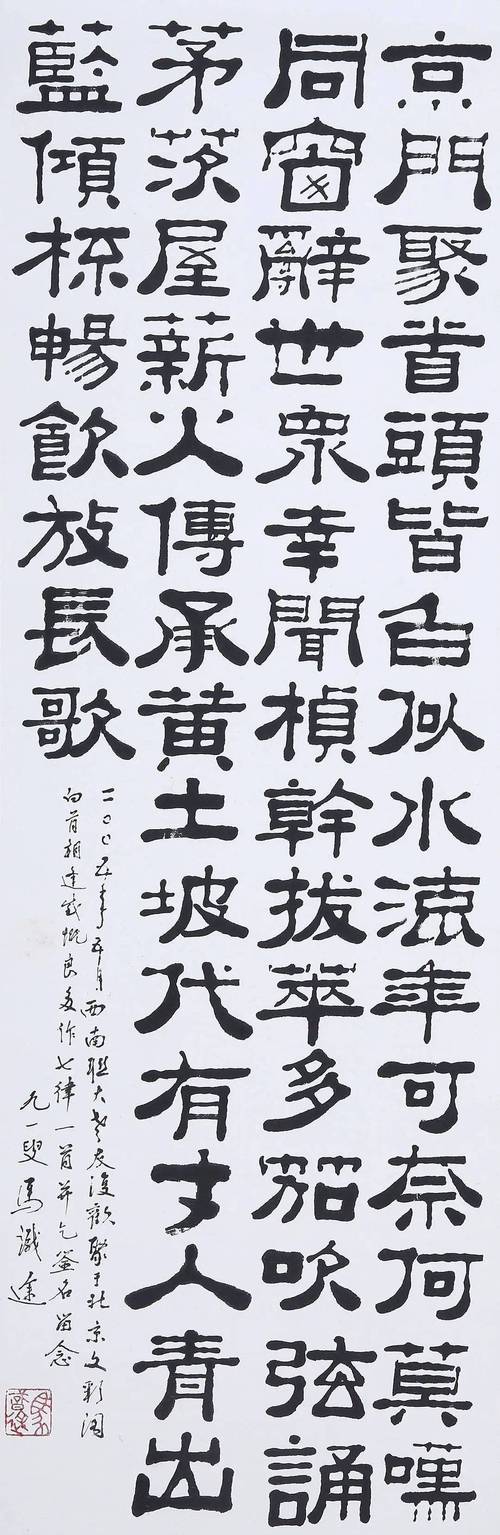 京門聚首頭皆白似水流年可奈何莫嘆
同窗辭世衆幸聞楨幹拔萃多笳吹弦誦
茅茨屋薪火傳承黄土坡代有才人青出
藍傾杯暢飲放長歌
二〇〇五年五月西南聯大老友復歡聚于北京文彩閣
白首相逢感慨良多作七律一首并乞簽名留念
九一叟馬識途